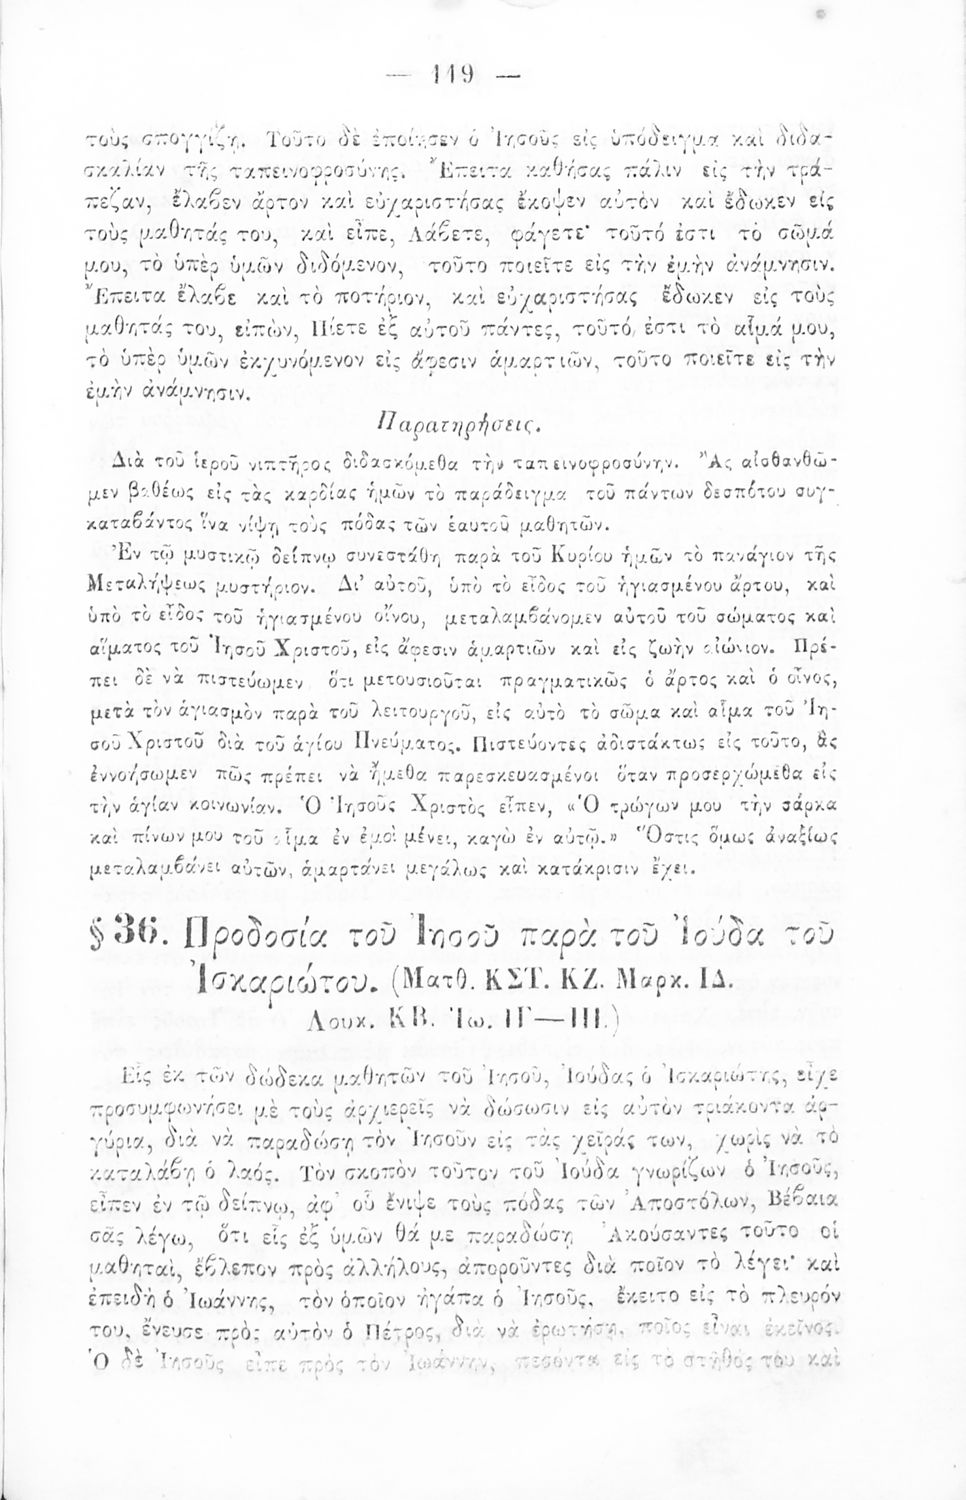 — 119 —
τοὺς σπογγίζῃ. Τοῦτο δὲ ἐποίησεν ὁ Ἰησοῦς εἰς ὑπόδειγμα καὶ διδα-
σκαλίαν τῆς ταπεινοφροσύνης. Ἔπειτα καθήσας πάλιν εἰς τὴν τρά-
πεζαν, ἔλαβεν ἄρτον καὶ εὐχαριστήσας ἔκοψεν αὐτὸν καὶ ἔδωκεν εἰς
τοὺς μαθητάς του, καὶ εἶπε, Λάβετε, φάγετε· τοῦτό ἐστι τὸ σῶμά
μου, τὸ ὑπὲρ ὑμῶν διδόμενον, τοῦτο ποιεῖτε εἰς τὴν ἐμὴν ἀνάμνησιν.
Ἔπειτα ἔλαβε καὶ τὸ ποτήριον, καὶ εὐχαριστήσας ἔδωκεν εἰς τοὺς
μαθητάς του, εἰπὼν, Πίετε ἐξ αὐτοῦ πάντες, τοῦτό ἐστι τὸ αἷμά μου,
τὸ ὑπὲρ ὑμῶν ἐκχυνόμενον εἰς ἄφεσιν ἁμαρτιῶν, τοῦτο ποιεῖτε εἰς τὴν
ἐμὴν ἀνάμνησιν.
Παρατηρήσεις.
Διὰ τοῦ ἱεροῦ νιπτῆρος διδασκόμεθα τὴν ταπεινοφροσύνην. Ἂς αἰσθανθῶ-
μεν βαθέως εἰς τὰς καρδίας ἡμῶν τὸ παράδειγμα τοῦ πάντων δεσπότου συγ-
καταβάντος ἵνα νίψῃ τοὺς πόδας τῶν ἑαυτοῦ μαθητῶν.
Ἐν τῷ μυστικῷ δείπνῳ συνεστάθη παρὰ τοῦ Κυρίου ἡμῶν τὸ πανάγιον τῆς
Μεταλήψεως μυστήριον. Δι’ αὐτοῦ, ὑπὸ τὸ εἶδος τοῦ ἡγιασμένου ἄρτου, καὶ
ὑπὸ τὸ εἶδος τοῦ ἡγιασμένου οἴνου, μεταλαμβάνομεν αὐτοῦ τοῦ σώματος καὶ
αἵματος τοῦ Ἰησοῦ Χριστοῦ, εἰς ἄφεσιν ἁμαρτιῶν καὶ εἰς ζωὴν αἰώνιον. Πρέ-
πει δὲ νὰ πιστεύωμεν ὅτι μετουσιοῦται πραγματικῶς ὁ ἄρτος καὶ ὁ οἶνος,
μετὰ τὸν ἁγιασμὸν παρὰ τοῦ λειτουργοῦ, εἰς αὐτὸ τὸ σῶμα καὶ αἷμα τοῦ Ἰη-
σοῦ Χριστοῦ διὰ τοῦ ἁγίου Πνεύματος. Πιστεύοντες ἀδιστάκτως εἰς τοῦτο, ἂς
ἐννοήσωμεν πῶς πρέπει νὰ ἤμεθα παρεσκευασμένοι ὅταν προσερχώμεθα εἰς
τὴν ἁγίαν κοινωνίαν. Ὁ Ἰησοῦς Χριστὸς εἶπεν, «Ὁ τρώγων μου τὴν σάρκα
καὶ πίνων μου τοῦ αἷμα ἐν ἐμοὶ μένει, καγὼ ἐν αὐτῷ.» Ὅστις ὅμως ἀναξίως
μεταλαμβάνει αὐτῶν, ἁμαρτάνει μεγάλως καὶ κατάκρισιν ἔχει.
§ 36. Προδοσία τοῦ Ἰησοῦ παρὰ τοῦ Ἰούδα τοῦ
Ἰσκαριώτου. (Ματθ. ΚΣΤ. ΚΖ. Μαρκ. ΙΔ.
Λουκ. ΚΒ. Ἰω. ΙΓ—ΙΗ.)
Εἷς ἐκ τῶν δώδεκα μαθητῶν τοῦ Ἰησοῦ, Ἰούδας ὁ Ἰσκαριώτης, εἶχε
προσυμφωνήσει μὲ τοὺς ἀρχιερεῖς νὰ δώσωσιν εἰς αὐτὸν τριάκοντα ἀρ-
γύρια, διὰ νὰ παραδώσῃ τὸν Ἰησοῦν εἰς τὰς χεῖράς των, χωρὶς νὰ τὸ
καταλάβῃ ὁ λαός. Τὸν σκοπὸν τοῦτον τοῦ Ἰούδα γνωρίζων ὁ Ἰησοῦς,
εἶπεν ἐν τῷ δείπνῳ, ἀφ’ οὗ ἔνιψε τοὺς πόδας τῶν Ἀποστόλων, Βέβαια
σᾶς λέγω, ὅτι εἷς ἐξ ὑμῶν θά με παραδώσῃ Ἀκούσαντες τοῦτο οἱ
μαθηταὶ, ἔβλεπον πρὸς ἀλλήλους, ἀποροῦντες διὰ ποῖον τὸ λέγει· καὶ
ἐπειδὴ ὁ Ἰωάννης, τὸν ὁποῖον ἠγάπα ὁ Ἰησοῦς, ἔκειτο εἰς τὸ πλευρόν
του, ἔνευσε πρὸς αὐτὸν ὁ Πέτρος, διὰ νὰ ἐρωτήσῃ, ποῖος εἶναι ἐκεῖνος.
Ὁ δὲ Ἰησοῦς εἶπε πρὸς τὸν Ἰωάννην, πεσόντα εἰς τὸ στῆθός του καὶ